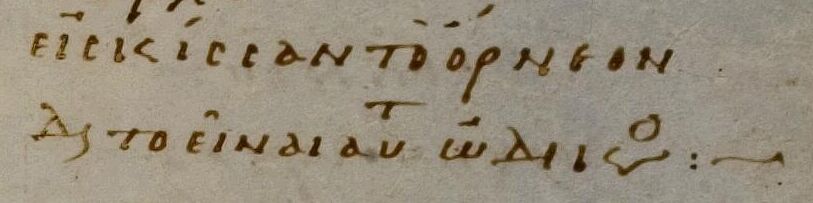 εἰς κίσσαν τὸ ὄρνεον
δ(ιὰ) τὸ εἶναι αὐτ(ὸ) ὠδικό(ν) :—